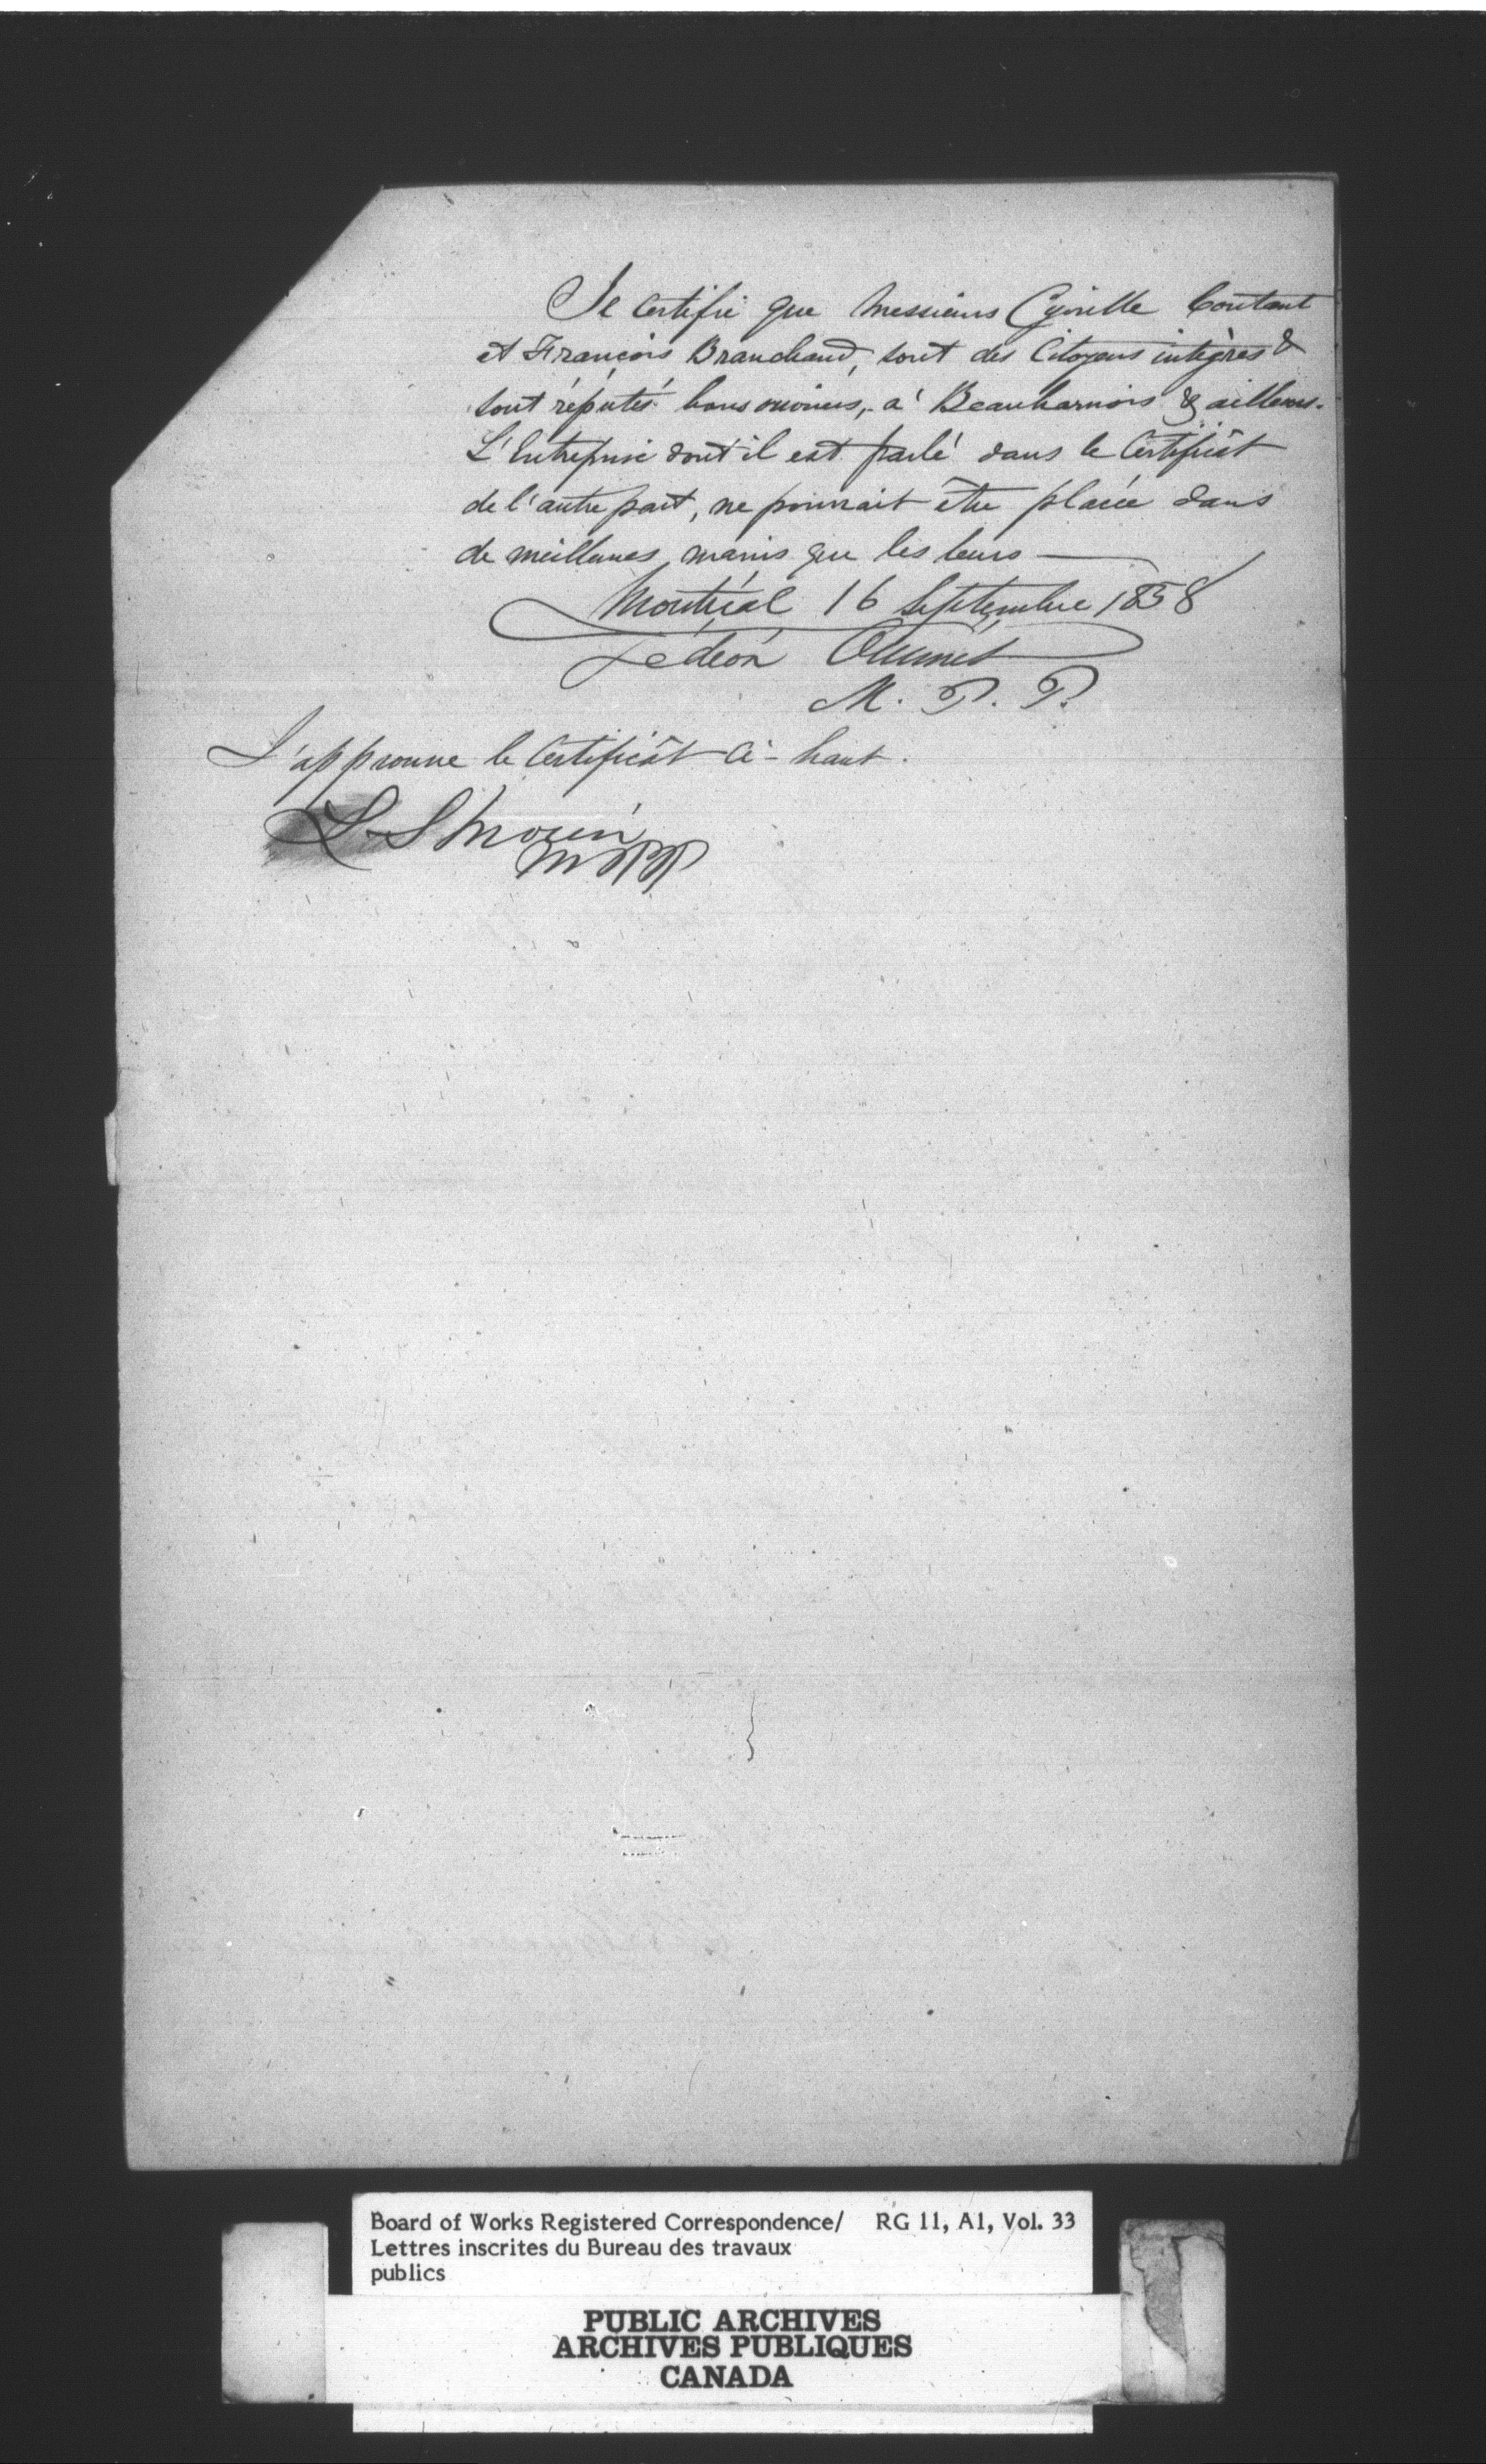 Je Certifie que Messieurs Cyrille Coutant
et François Branchaud, sont des Citoyens intègres &
sont réputés bons ouvriers, à Beauharnois & ailleurs.
L'Entreprise dont il est parlé dans le Certificât
de l'autre part, ne pourrait être placée dans
de meilleures mains que les leurs —
Montréal 16 Septembre 1858
Gédéon Ouimet
M. P. P.
J'approuve le Certificât ci-haut.
L. S Morin
MPP
Board of Works Registered Correspondence/ RG 11, A1, Vol. 33
Lettres inscrites du Bureau des travaux
publics
PUBLIC ARCHIVES
ARCHIVES PUBLIQUES
CANADA